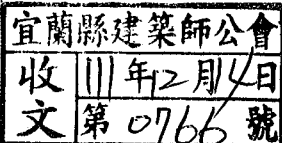 宜蘭縣建築師公會
收文
111年12月14日
第0766號